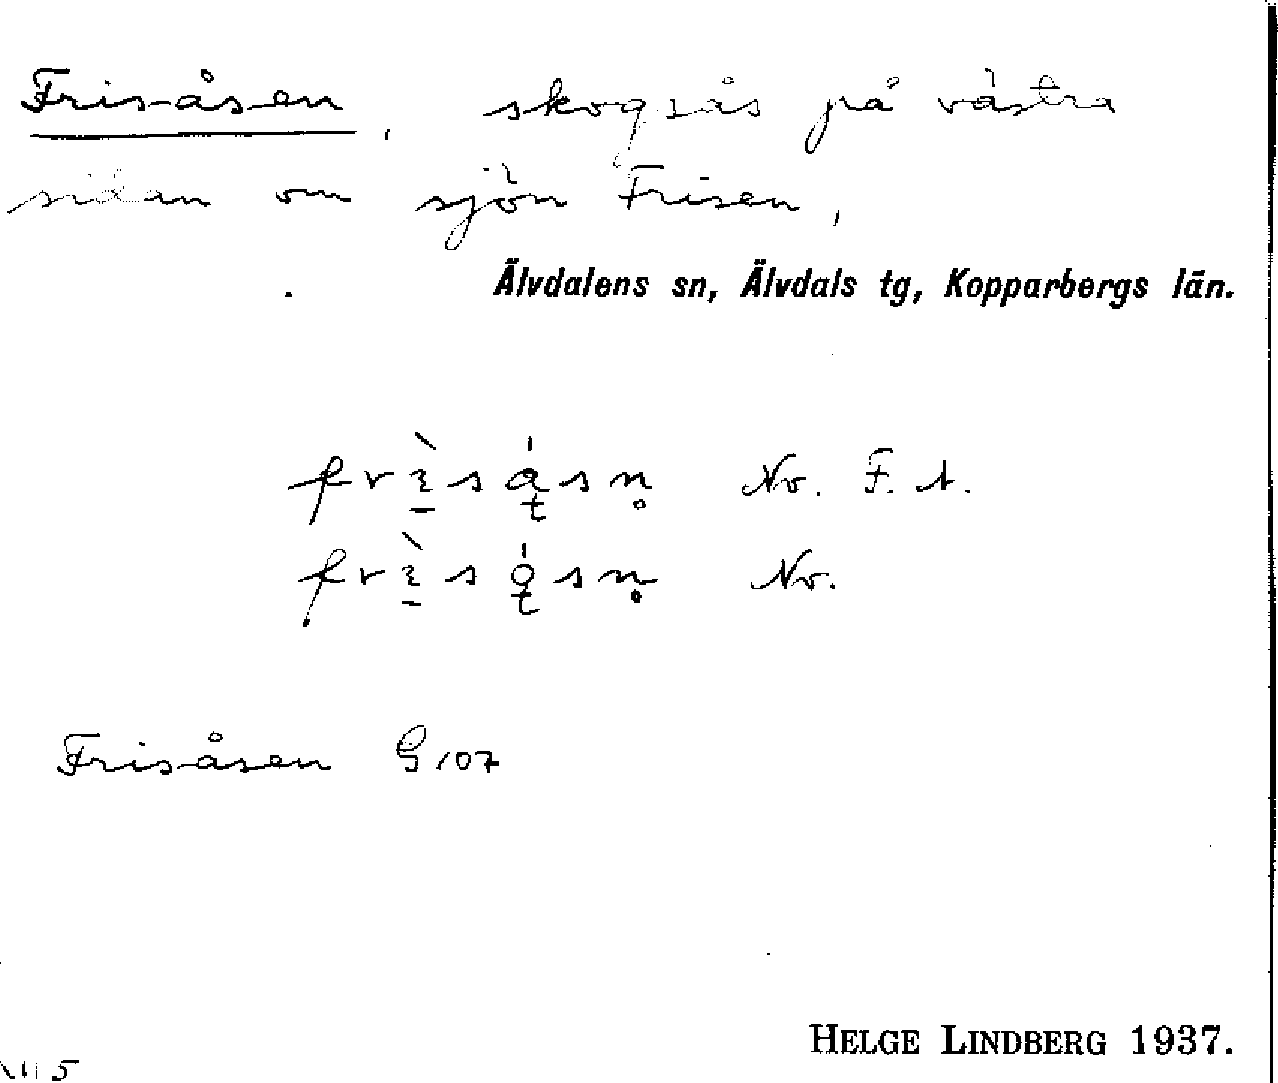 Frisåsen, skogsås på västra
sidan om sjön Frisen,
Älvdalens sn, Älvdals tg, Kopparbergs län.
No. F. A.
No.
Frisåsen G 107
HELGE LINDBERG 1937.